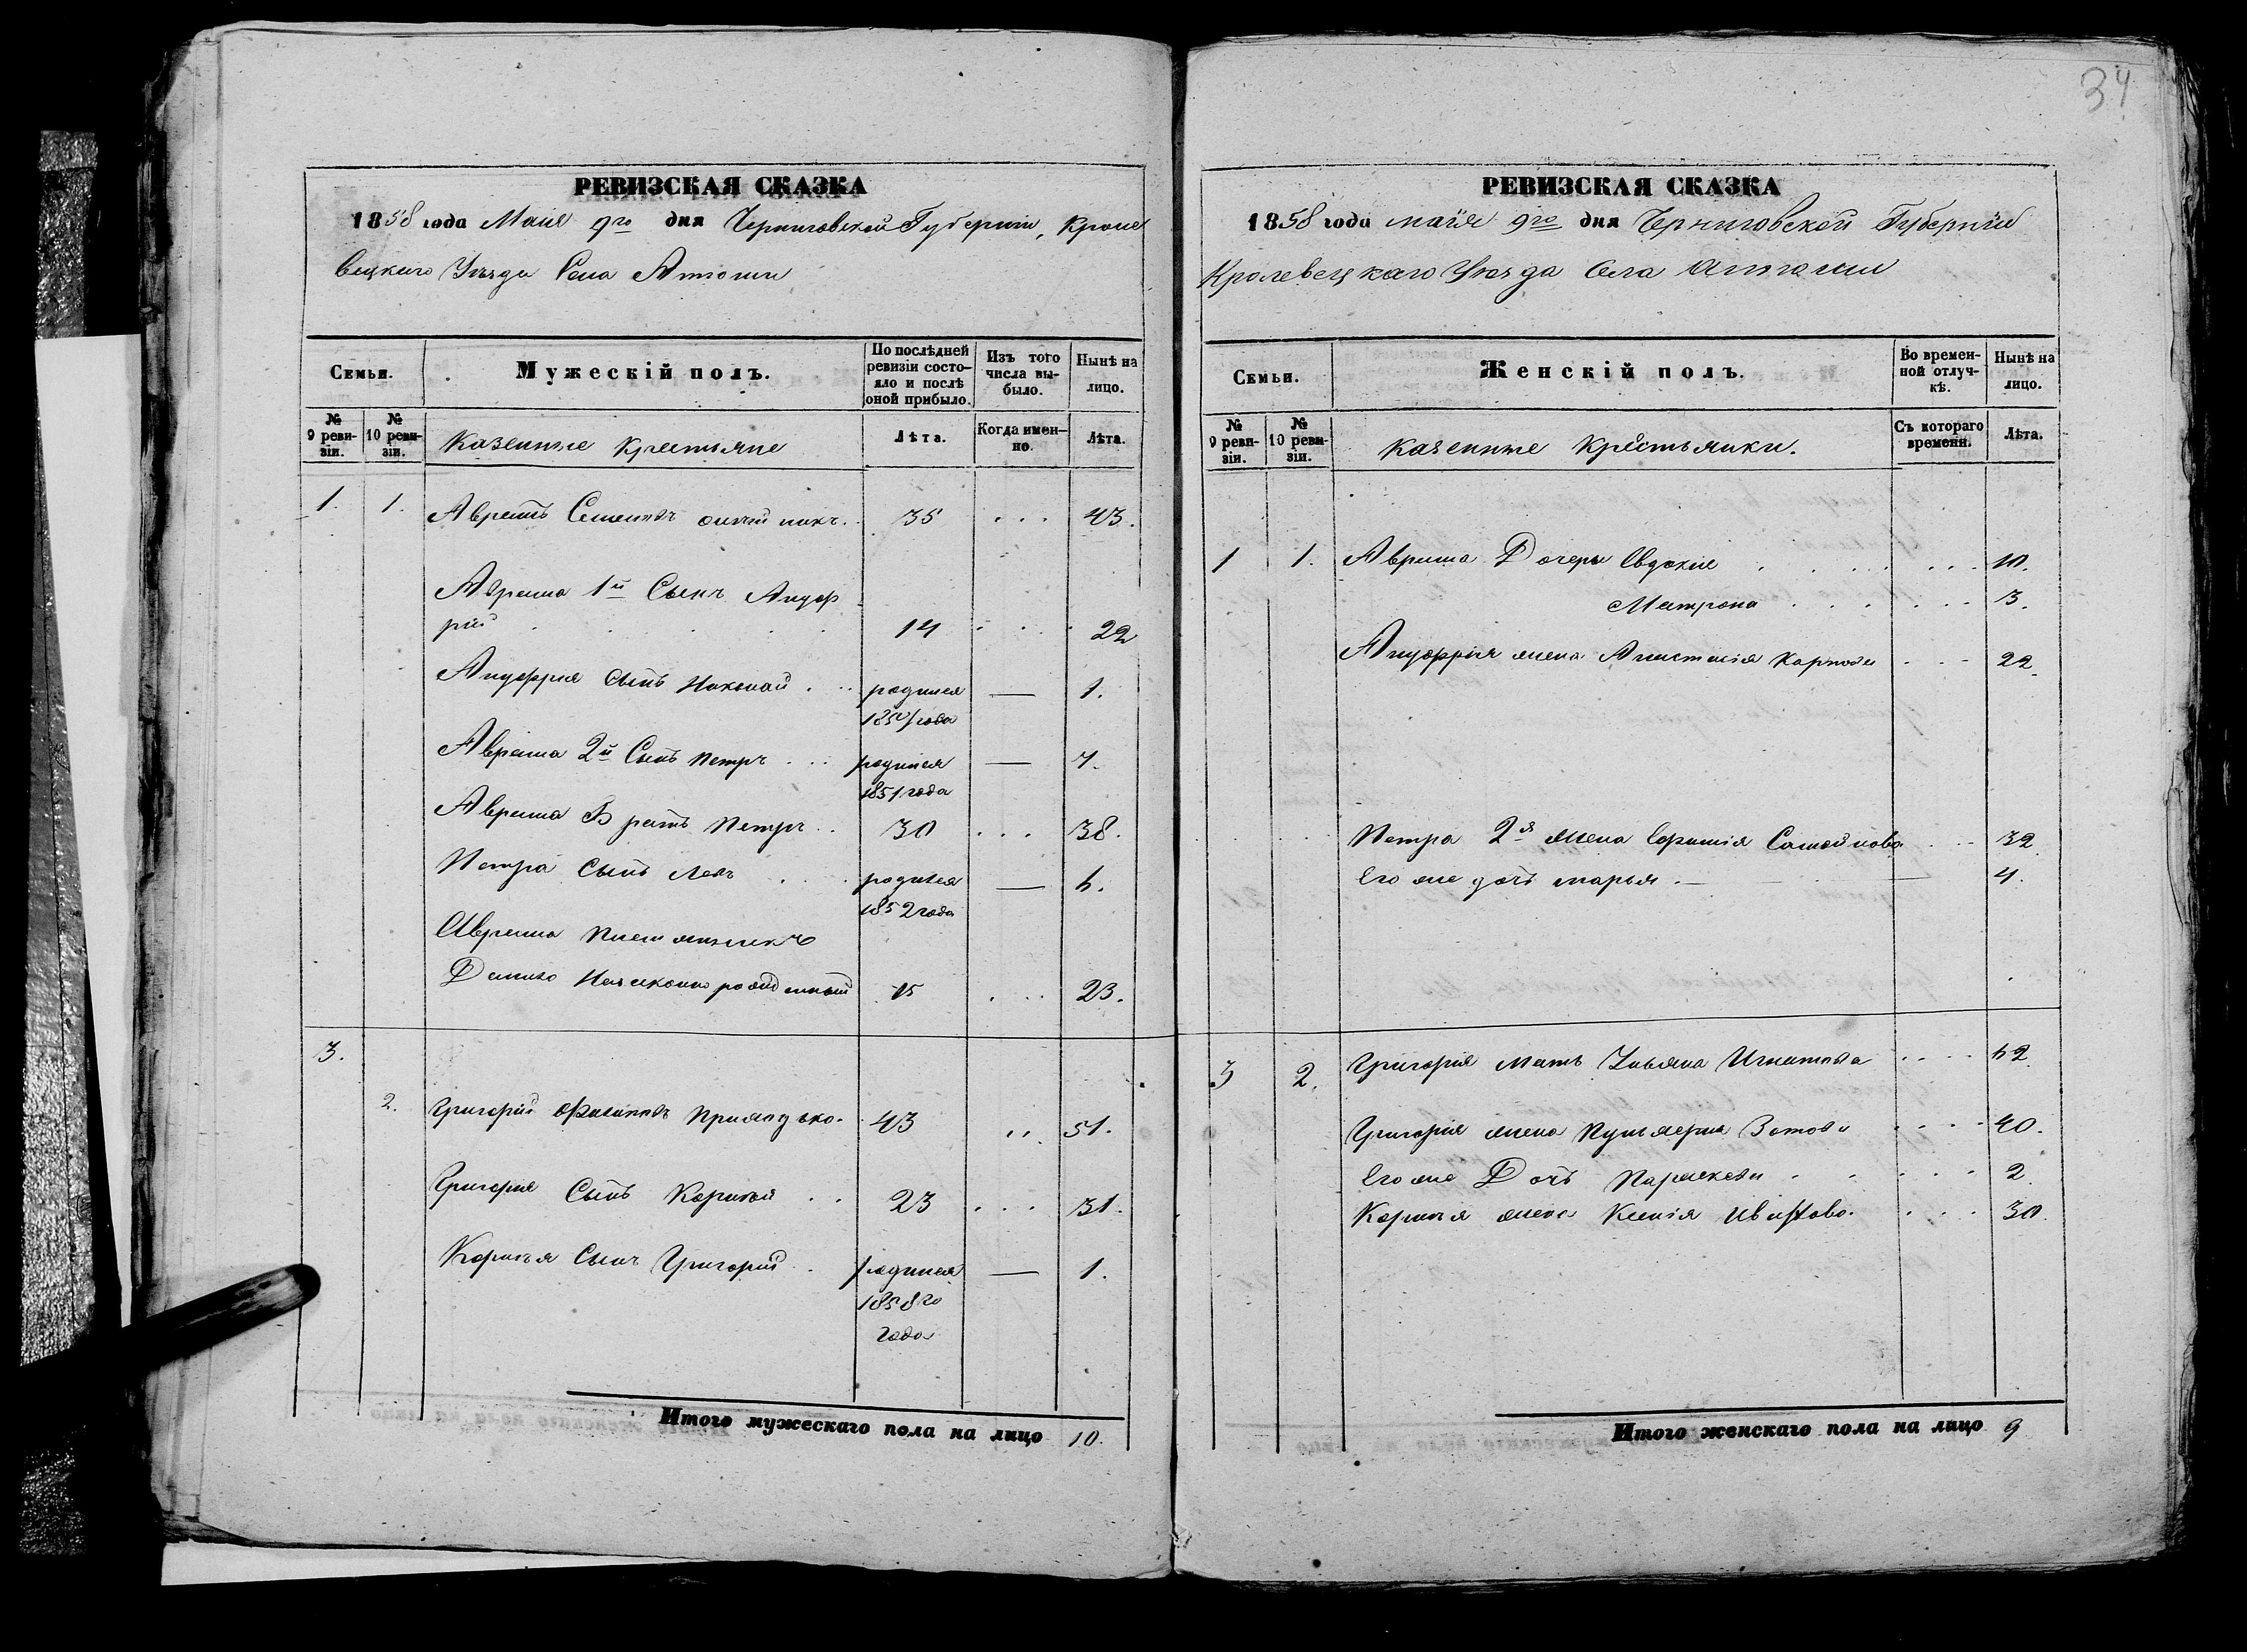 34
РЕВИЗСКАЯ СКАЗКА
1858 года Маія 9го дня Черниговской Губерніи, Кроле
вецкаго Уѣзда Села Антоши
Семьи.
Мужескій полъ.
По послѣдней ревизіи состояло и послѣ оной прибыло.
Изъ того числа выбыло.
Нынѣ на лицо.
№ 9 ревизіи.
№ 10 ревизіи.
Казенные Крестьяне
Лѣта.
Когда именно.
Лѣта.
1. 1. Аврамъ Семеновъ 35 . . . 43.
Аврама 1й Сынъ Ануф
рій 14 . . . 22
Ануфрія Сынъ Николай . . . родился — 1.
1857 года
Аврама 2й Сынъ Петръ . . . родился — 7.
1851 года
Аврама Братъ Петръ . . 30 . . . 38.
Петра Сынъ Левъ . . . родился —
1852 года
Аврама
15 . . . 23.
3.
2. Григорій 43 . . . 51.
Григорія Сынъ Корнѣй . . 23 . . . 31.
Корнѣя Сынъ Григорій . . родился — 1.
1858го
года
Итого мужескаго пола на лицо 10.
РЕВИЗСКАЯ СКАЗКА
1858 года маія 9го дня Черниговской Губерніи
Кролевецкаго Уѣзда Села Антоши
Семьи.
Женскій полъ.
Во временной отлучкѣ.
Нынѣ на лицо.
№ 9 ревизіи.
№ 10 ревизіи.
Казенные Крестьянки.
Съ котораго времени.
Лѣта.
1 1. Аврама Дочери Евдокія . . . 10.
Матрона . . . 3.
Ануфрія жена Анастасія Карпова . . . 22.
Петра 2я жена Самойлова . . . 32
Его же дочь марья . — 4.
3 2. Григорія Мать Ульяна Игнатова . . . .
Григорія жена Зотова . . . . 40.
Его же Дочь Параскева . . . . 2
Корнѣя жена Ксенія . . . 30.
Итого женскаго пола на лицо 9